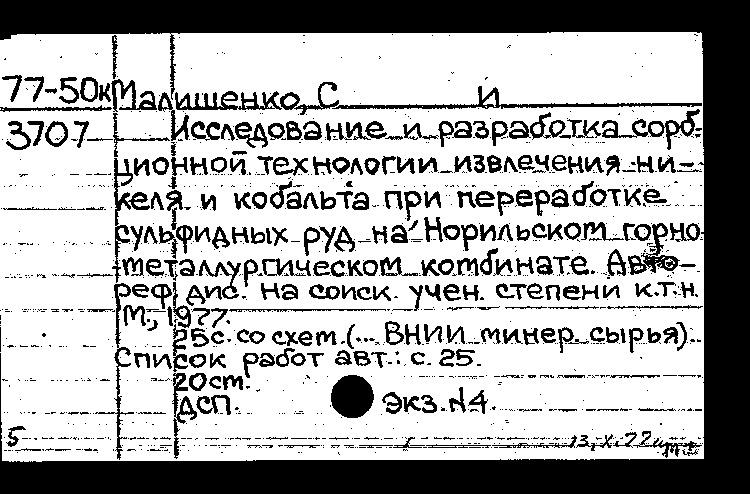 77-50к Малишенко, С И
3707 Исследование и разработка сорб-
ционной технологии извлечения ни-
келя и кобальта при переработке
сульфидных руд на Норильском горно
металлургическом комбинате. Авто-
реф. дис. на соиск. учен. степени к.т.н.
М., 1977.
25с. со схем. (... ВНИИ минер. сырья).
Список работ авт.: с. 25.
20см.
ДСП. Экз. №4.
5 13.X.77